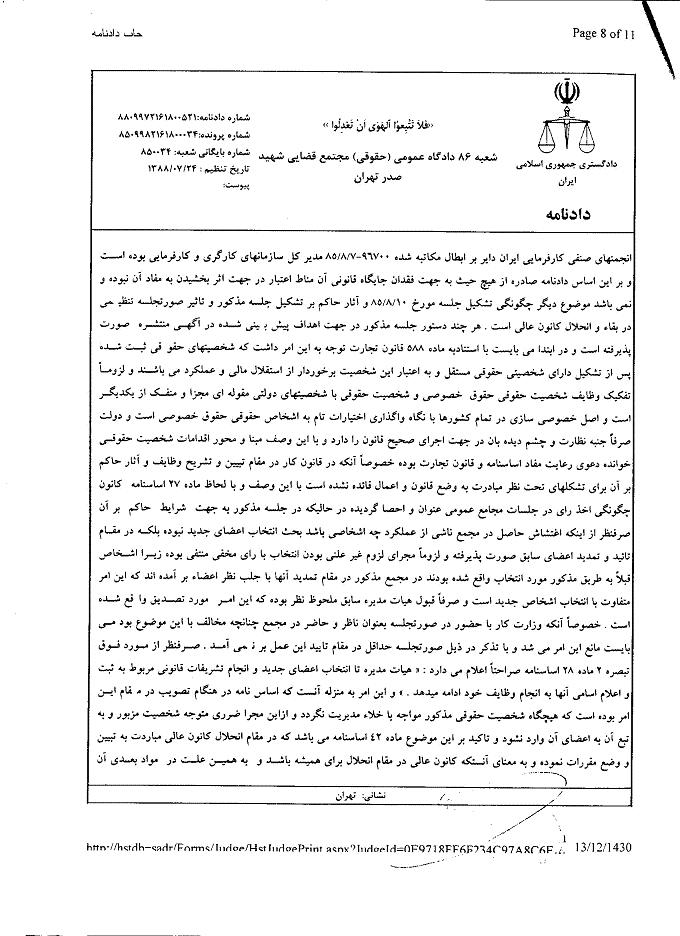 چاپ دادنامه
Page 8 of 11
شماره دادنامه:۸۸۰۹۹۷۲۱۶۱۸۰۰۵۲۱
شماره پرونده:۸۵۰۹۹۸۲۱۶۱۸۰۰۰۳۴
شماره بایگانی شعبه: ۸۵۰۰۳۴
تاریخ تنظیم : ۱۳۸۸/۰۷/۲۴
پیوست:
«فَلاَ تَتَّبِعوُا اَلْهَوَی اَنْ تَعْدِلُوا »
شعبه ۸۶ دادگاه عمومی (حقوقی) مجتمع قضایی شهید
صدر تهران
دادگستری جمهوری اسلامی
ایران
دادنامه
انجمنهای صنفی کارفرمایی ایران دایر بر ابطال مکاتبه شده ۹۶۷۰۰-۸۵/۸/۷ مدیر کل سازمانهای کارگری و کارفرمایی بوده است
و بر این اساس دادنامه صادره از هیچ حیث به جهت فقدان جایگاه قانونی آن مناط اعتبار در جهت اثر بخشیدن به مفاد آن نبوده و
نمی باشد موضوع دیگر چگونگی تشکیل جلسه مورخ ۸۵/۸/۱۰ و آثار حاکم بر تشکیل جلسه مذکور و تاثیر صورتجلسه تنظیمی
در بقاء و انحلال کانون عالی است . هر چند دستور جلسه مذکور در جهت اهداف پیش بینی شده در آگهی منتشره صورت
پذیرفته است و در ابتدا می بایست با استنادبه ماده ۵۸۸ قانون تجارت توجه به این امر داشت که شخصیتهای حقو قی ثبت شده
پس از تشکیل دارای شخصیتی حقوقی مستقل و به اعتبار این شخصیت برخوردار از استقلال مالی و عملکرد می باشند و لزوماً
تفکیک وظایف شخصیت حقوقی حقوق خصوصی و شخصیت حقوقی با شخصیتهای دولتی مقوله ای مجزا و منفک از یکدیگر
است و اصل خصوصی سازی در تمام کشورها با نگاه واگذاری اختیارات تام به اشخاص حقوقی حقوق خصوصی است و دولت
صرفاً جنبه نظارت و چشم دیده بان در جهت اجرای صحیح قانون را دارد و با این وصف مبنا و محور اقدامات شخصیت حقوقی
خوانده دعوی رعایت مفاد اساسنامه و قانون تجارت بوده خصوصاً آنکه در قانون کار در مقام تبیین و تشریح وظایف و آثار حاکم
بر آن برای تشکلهای تحت نظر مبادرت به وضع قانون و اعمال قائده نشده است با این وصف و با لحاظ ماده ۲۷ اساسنامه کانون
چگونگی اخذ رای در جلسات مجامع عمومی عنوان و احصا گردیده در حالیکه در جلسه مذکور به جهت شرایط حاکم بر آن
صرفنظر از اینکه اغتشاش حاصل در مجمع ناشی از عملکرد چه اشخاصی باشد بحث انتخاب اعضای جدید نبوده بلکه در مقام
تائید و تمدید اعضای سابق صورت پذیرفته و لزوماً مجرای لزوم غیر علنی بودن انتخاب با رای مخفی منتفی بوده زیرا اشخاص
قبلاً به طریق مذکور مورد انتخاب واقع شده بودند در مجمع مذکور در مقام تمدید آنها با جلب نظر اعضاء بر آمده اند که این امر
متفاوت با انتخاب اشخاص جدید است و صرفاً قبول هیات مدیره سابق ملحوظ نظر بوده که این امر مورد تصدیق وا قع شده
است . خصوصاً آنکه وزارت کار با حضور در صورتجلسه بعنوان ناظر و حاضر در مجمع چنانچه مخالف با این موضوع بود می
بایست مانع این امر می شد و با تذکر در ذیل صورتجلسه حداقل در مقام تایید این عمل بر نمی آمد . صرفنظر از مورد فوق
تبصره ۲ ماده ۲۸ اساسنامه صراحتاً اعلام می دارد : « هیات مدیره تا انتخاب اعضای جدید و انجام تشریفات قانونی مربوط به ثبت
و اعلام اسامی آنها به انجام وظایف خود ادامه میدهد . » و این امر به منزله آنست که اساس نامه در هنگام تصویب در مقام این
امر بوده است که هیچگاه شخصیت حقوقی مذکور مواجه با خلاء مدیریت نگردد و ازاین مجرا ضرری متوجه شخصیت مزبور و به
تبع آن به اعضای آن وارد نشود و تاکید بر این موضوع ماده ۴۲ اساسنامه می باشد که در مقام انحلال کانون عالی مبادرت به تبیین
و وضع مقررات نموده و به معنای آنستکه کانون عالی در مقام انحلال برای همیشه باشد و به همین علت در مواد بعدی آن
نشانی: تهران
http://hstdb-sadr/Forms/Judge/HstJudgePrint.aspx?JudgeId=0F9718FF6F234C97A8C6F...
13/12/1430